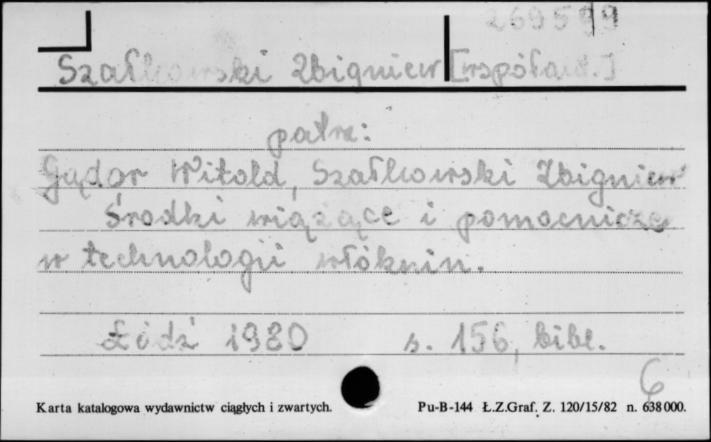 269599
Szałkowski Zbigniew [współaut.]
patrz:
Gądor Witold, Szałkowski Zbigniew
Środki wiążące i pomocnicze
w technologii włóknin.
Łódź 1980 s. 156, bibl.
6
Karta katalogowa wydawnictw ciągłych i zwartych. Pu-B-144 Ł.Z.Graf. Z. 120/15/82 n. 638000.